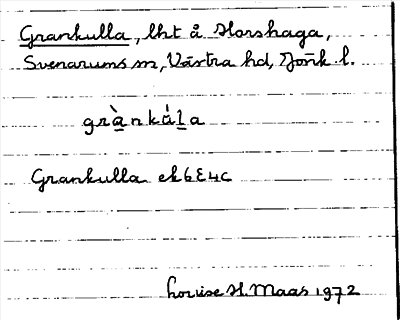 Grankulla, lht å Horshaga,
Svenarums sn, Västra hd, Jönk l.
grànkúla
Grankulla ek 6E4c
Louise H. Maas 1972